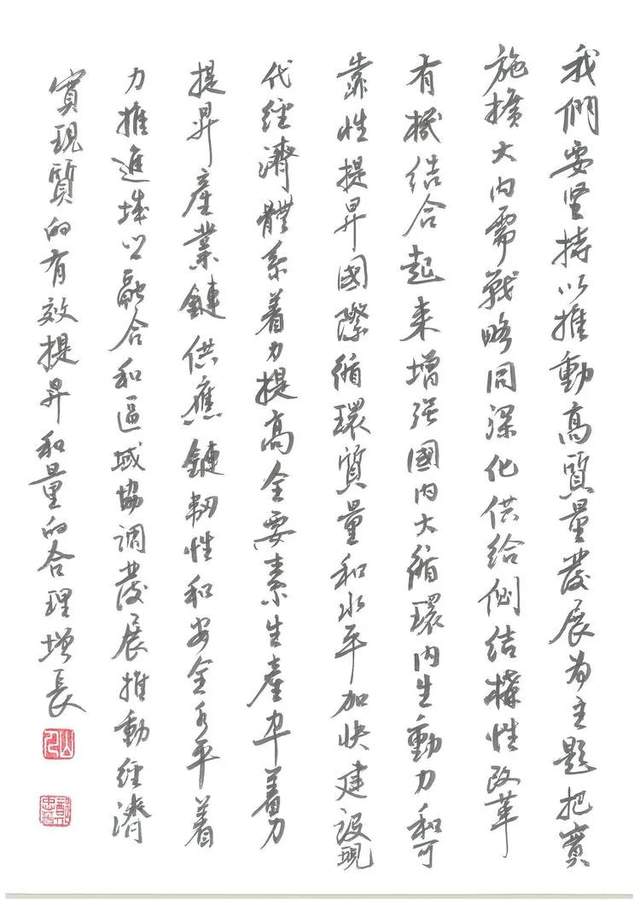 我們要坚持以推動高質量發展為主題把實
施擴大内需戰略同深化供给側结構性改革
有機结合起来增强國内大循環内生動力和可
靠性提昇國際循環質量和水平加快建設現
代經濟體系着力提高全要素生產率着力
提昇產業鏈供應鏈韧性和安全水平着
力推進城鄉融合和區域協調發展推動經濟
實現質的有效提昇和量的合理增長